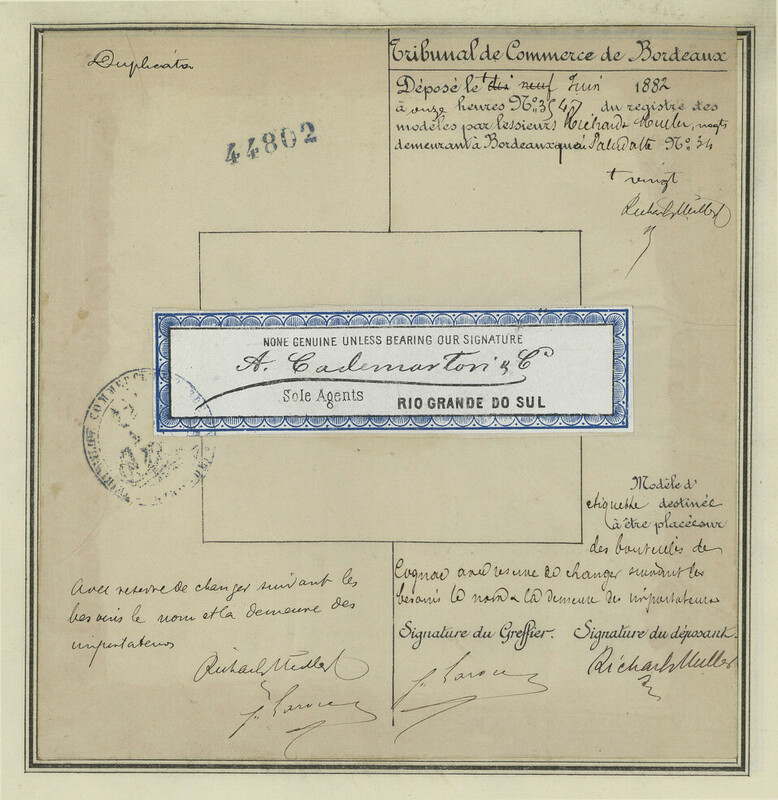 Duplicata
44802
Tribunal de Commerce de Bordeaux
Déposé le t dix neuf Juin 1882
à onze heures No. du registre des
modèles par lessieurs Richard & Muller, negts
demeurant à Bordeaux quai Paludatte No. 34
t vingt
Richard & Muller
NONE GENUINE UNLESS BEARING OUR SIGNATURE
A. Cademartori & Co
Sole Agents RIO GRANDE DO SUL
Modèle d'
etiquette destinée
à être placée sur
des bouteilles de
Cognac avec reserve de changer suivant les
besoins le nom & la demeure des importateurs
Signature du Greffier. Signature du déposant.
Richard & Muller
Avec reserve de changer suivant les
besoins le nom et la demeure des
importateurs
Richard & Muller